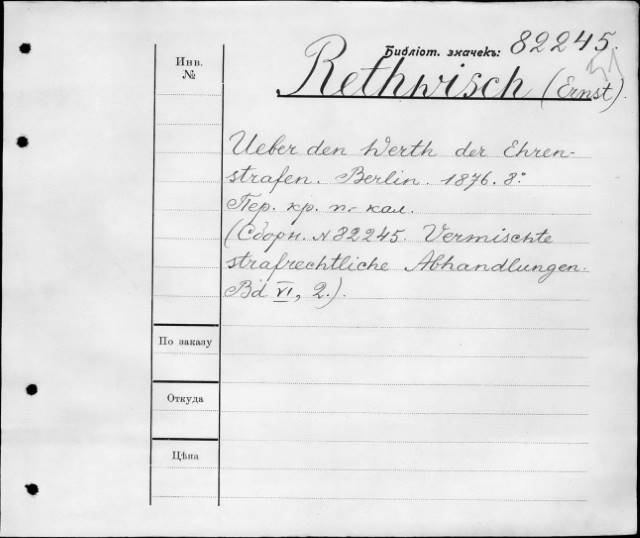 Библіот. значекъ: 82245.
Инв.
№
Rethwisch (Ernst)
Ueber den Werth der Ehren-
strafen. Berlin. 1876. 8º
Пер. кр. п.- кал.
(Сборн. № 82245. Vermischte
strafrechtliche Abhandlungen.
Bd VI, 2.).
По заказу
Откуда
Цѣна